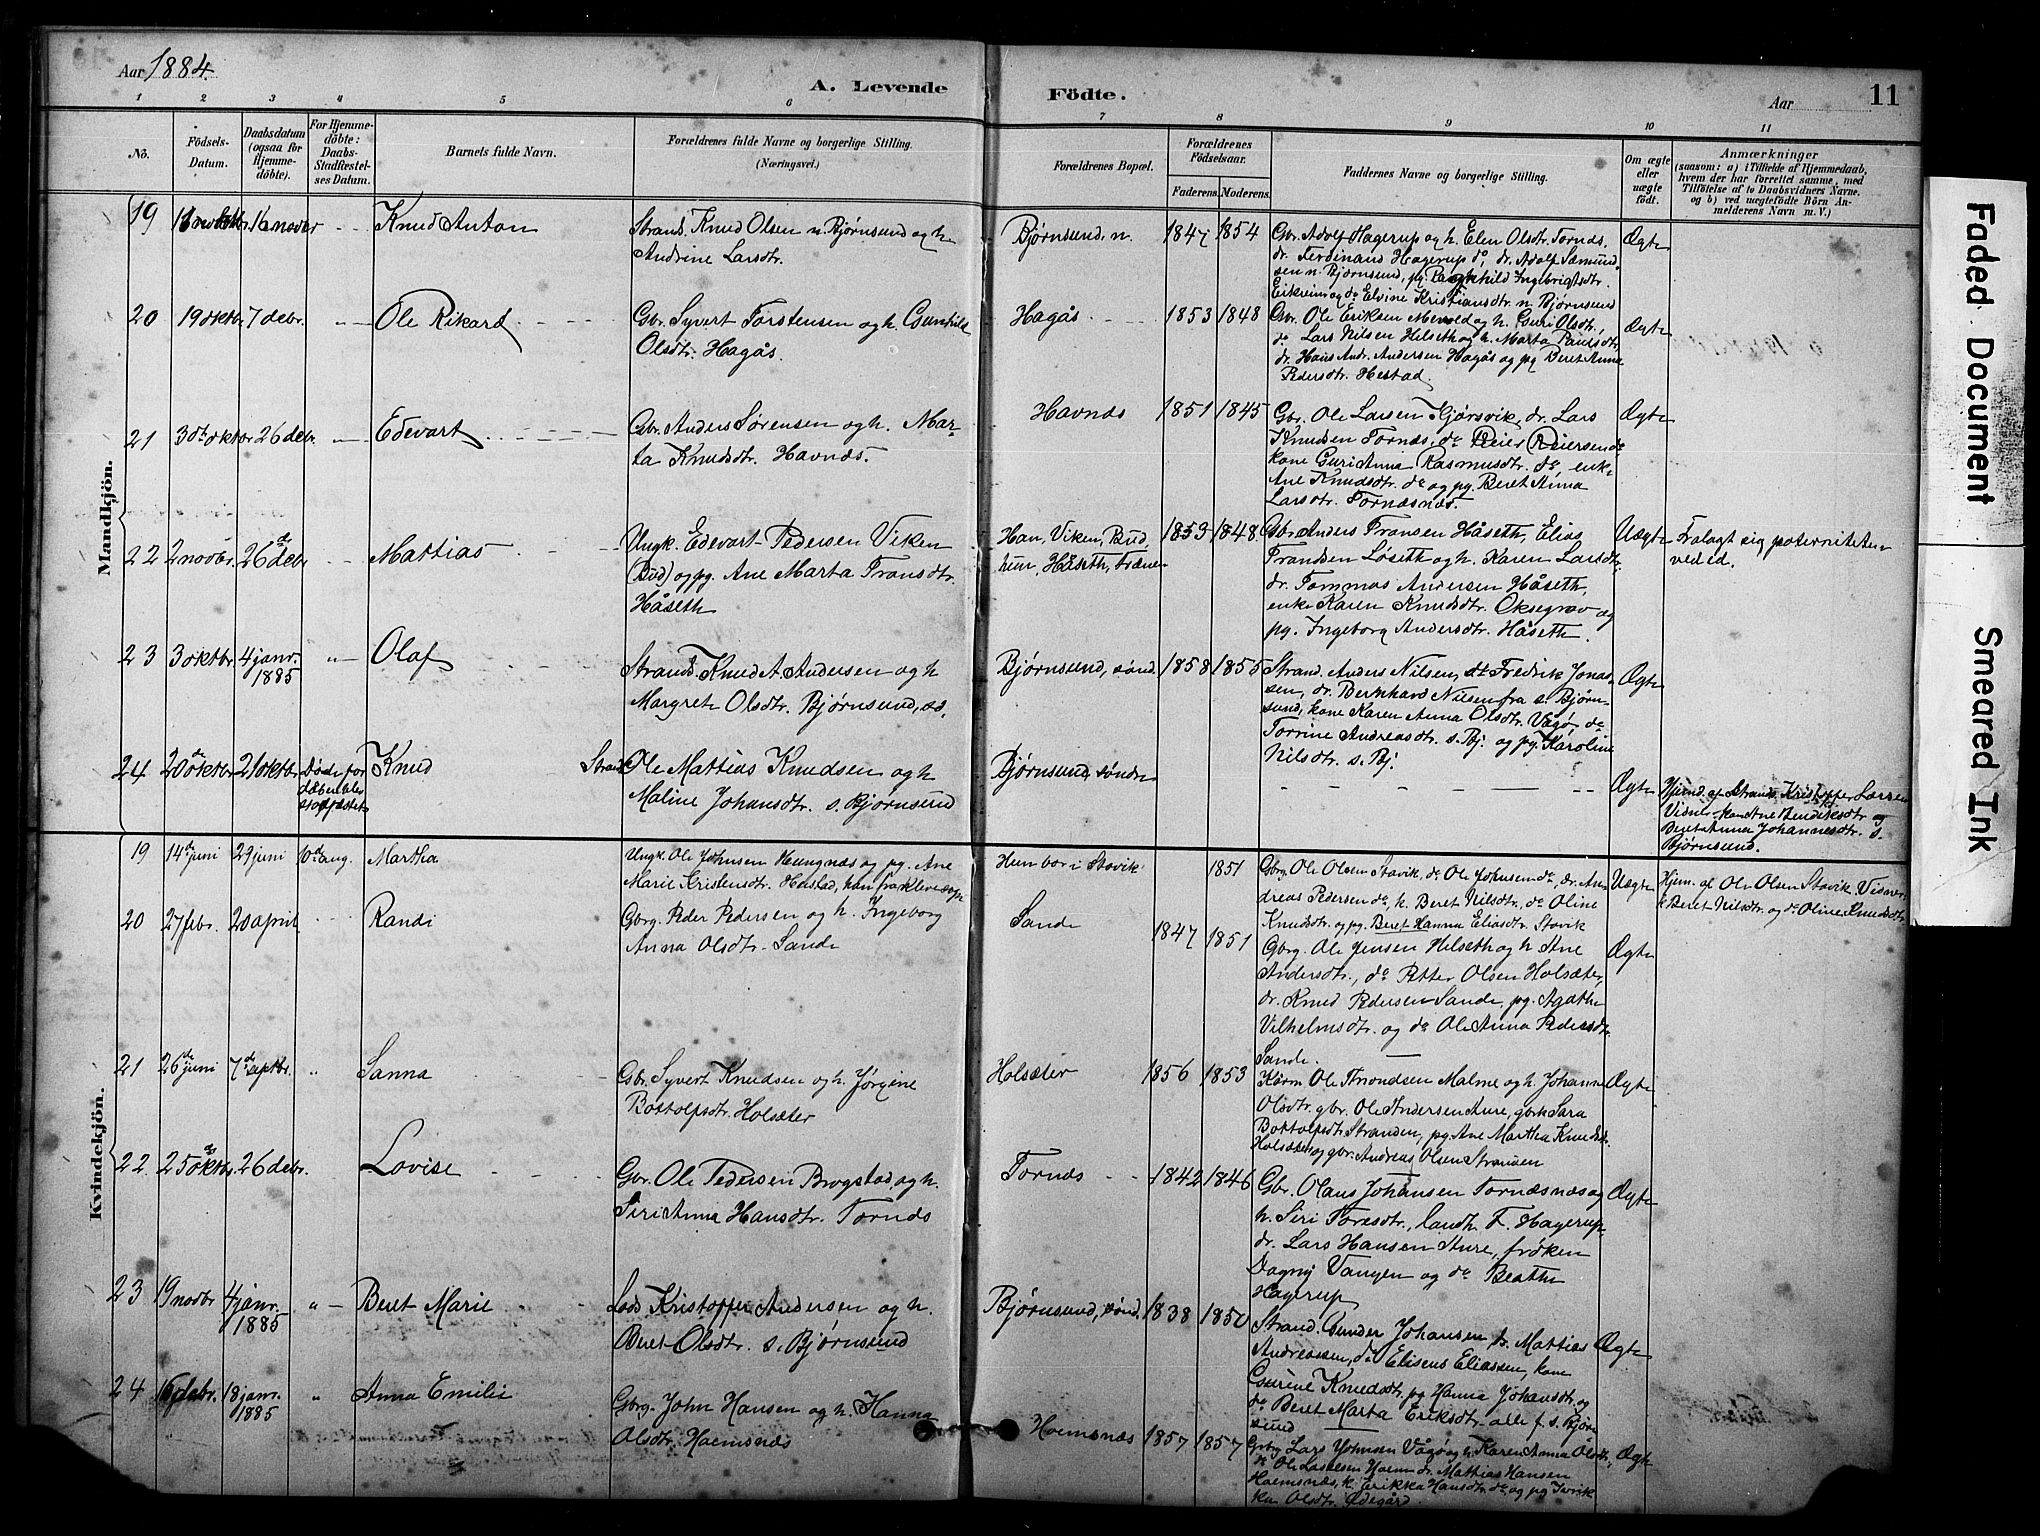 Aar 1884.
A. Levende
Födte.
Aar
11
1 2 3 4 5 6 7 8 9 10 11
No.
Födsels-
Datum.
Daabsdatum
(ogsaa for
Hjemme-
döbte).
For Hjemme-
döbte:
Daabs-
Stadfæstel-
ses Datum.
Barnets fulde Navn.
Forældrenes fulde Navne og borgerlige Stilling.
(Næringsvei.)
Forældrenes Bopæl.
Forældrenes
Födselsaar.
Faderens. Moderens.
Faddernes Navne og borgerlige Stilling.
Om ægte
eller
uægte
født.
Anmærkninger
(saasom: a) i Tilfælde af Hjemmedaab,
hvem der har forrettet samme, med
Tilföielse af to Daabsvidners Navne.
og b) ved uægtefödte Börn An-
melderens Navn m. V.)
Mandkjön.
19 16 novbr Knud Anton
Strands. Knud Olsen n. Bjørnsund og h.
Andrine Larsdtr.
Bjørnsund, n. 1847 1854
Gbr. Adolf Hagerup og h. Elen Olsdtr. Tornæs.
dr. Ferdinand Hagerup do, dr. Adolf Sæmund
sen n. Bjørnsund, pg. Ragnhild Ingebrigtsdtr.
Eikreim og do Elvine Kristiansdtr n. Bjørnsund
Ægte
20 19 oktbr. 7 debr. " Ole Rikard
Gbr. Syvert Torstensen og h. Gunhild
Olsdtr. Hagås.
Hagås 1853 1848
Gbr. Ole Eriksen Mevold og h. Guri Olsdtr.,
do Lars Nilsen Helseth og h. Marta Paulsdtr.
dr. Hans Andr. Andersen Hagås og pg Beret Anna
Pedersdtr. Hestad.
Ægte
21 3 oktbr. 26 debr. " Edevart
Gbr. Anders Sørensen og h. Mar-
ta Knudsdtr. Havnæs.
Havnæs 1851 1845
Gbr. Ole Larsen Gjørsvik, dr. Lars
Knudsen Tornæs, do Reier Reiersen do
kone Guri Anna Rasmusdtr. do, enke
Ane Knudsdtr. do og pg. Beret Anna
Larsdtr. Tornæsnæs.
Ægte
22 2 novbr. 26 debr. " Mattias
Ungk. Edevart Pedersen Viken
(Bud) og pg. Ane Marta Fransdtr.
Håseth
Han, Viken, Bud,
hun, Håseth, Fræne 1853 1848
Gbr Anders Fransen Håseth, Elias
Frandsen Løseth og h. Karen Larsdtr.
dr. Tommas Andersen Håseth,
enke Karen Knudsdtr. Oksegrov og
pg. Ingeborg Andersdtr. Håseth.
Uægte
Fralagt sig paterniteten
ved ed.
23 3 oktbr. 4 janr. " Olaf
1885
Strands. Knud A. Andersen og h
Margrete Olsdtr. Bjørnsund, sd.
Bjørnsund, sønd. 1858 1855
Strand. Anders Nilsen, st. Fredrik Jonas-
sen, dr. Bernhard Nilsen fra s. Bjørn-
sund, kone Karen Anna Olsdtr. Vågø, do
Torrine Andreasdtr. s. Bj. og pg. Karoline
Nilsdtr. s. Bj.
Ægte
24 20 oktbr 21 oktbr Døde før
dåben blev
stadfæstet
Knud
Strand. Ole Mattias Knudsen og h
Maline Johansdtr. s. Bjørnsund
Bjørnsund, søndre
Ægte
Hjemd. af Strands. Kristoffer Larsen
Vidner: kone Ane Bendiksdtr og
Beret Anna Johannesdtr. s.
Bjørnsund.
Kvindekjön.
19 14 juni 29 juni 10 aug. Martha
Ungk. Ole Johnsen Hungnæs og pg. Ane
Marie Kristensdtr. Horstad, han fra
Hun bor i Stavik 1851
Gbrg. Ole Olsen Stavik, do Ole Johnsen do, dr. An
dreas Pedersen do, k. Beret Nilsdtr, do Oline
Knudsdtr. og pg. Beret Hanna Eliasdtr. Stavik
Uægte
Hjem. af Ole Olsen Stavik. Vidner,
k Beret Nilsdtr. og do Oline Knudsdtr.
20 27 febr. 20 april Randi
Gbrg. Peder Pedersen og h. Ingeborg
Anna Olsdtr. Sande
Sande 1847 1851
Gbrg. Ole Jensen Helseth og h. Ane
Andersdtr., do Petter Olsen Holsæter,
dr. Knud Pedersen Sande, pg. Agathe
Vilhelmsdtr. og do Ole Anna Pedersdtr.
Sande.
Ægte
21 26 juni 7 septbr. " Sanna
Gbr. Syvert Knudsen og h. Jørgine
Bottolfsdtr. Holsæter
Holsæter 1856 1853
Kårm. Ole Tnondsen Malme og h. Johanne
Olsdtr. gbr. Ole Andersen Aure, gbrk Sara
Bottolfsdtr. Stranden, pg. Ane Martha Knudsdtr.
Holsæter og gbr. Andreas Olsen Stranden
Ægte
22 25 oktbr. 26 debr. Lovise
Gbr. Ole Pedersen Brogstad og h.
Siri Anna Hansdtr. Tornæs
Tornæs 1842 1846
Gbr. Olaus Johansen Tornæsnæs og
h. Siri Toresdtr., landh. F. Hagerup,
dr. Lars Hansen Aure, frøken
Dagny Vangen og do Beathe
Hagerup
Ægte
23 19 novbr 4 janr. " Beret Marie
1885
Lods Kristoffer Andersen og h.
Beret Olsdtr. s. Bjørnsund
Bjørnsund, sønd. 1838 1850
Strand. Gunder Johansen, dr. Mattias
Andreassen, do Eliseus Eliassen, kone
Gurine Knudsdtr. pg Hanna Johansdtr. og
do Beret Marta Eriksdtr. alle f. s. Bjørn
sund
Ægte
24 16 debr. 18 janr. " Anna Emilie
1885
Gbrg. John Hansen og h. Hanna
Olsdtr. Hoemsnæs
Hoemsnæs 1857 1857
Gbrg Lars Johnsen Vågø og h. Karen Anna Olsdtr,
do Ole Larsen Hoem dr. Mattias Hansen
Hoemsnæs, k. Erikka Hansdtr. do, og pg
Olsdtr. Ødegård.
Ægte
Faded Document
Smeared Ink